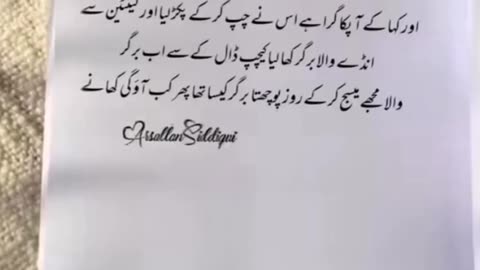 اور کہا کے آپکا گرا ہے اس نے چپ کر کے پکڑ لیا اور کینٹین سے
انڈے والا برگر کھا لیا کیچپ ڈال کے سے اب برگر
والا مجھے میسج کر کے روز پوچھتا برگر کیسا تھا پھر کب آؤ گی کھانے
Arsallan Siddiqui